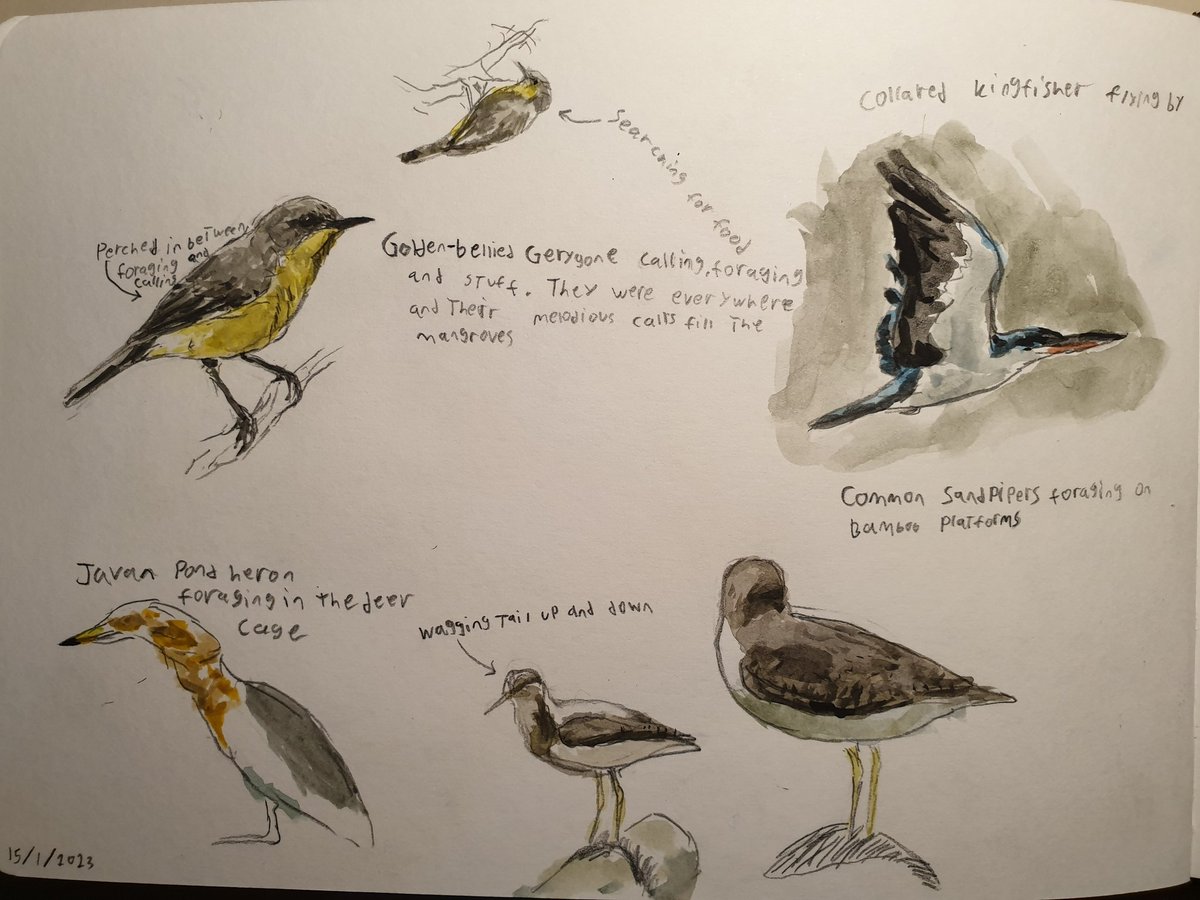 Collared kingfisher flying by
Searching for food
Perched in between
foraging and
calling
Golden-bellied Gerygone calling, foraging
and stuff. They were everywhere
and Their melodious calls fill The
mangroves
Common Sandpipers foraging on
Bamboo Platforms
Javan Pond heron
foraging in The deer
cage
Wagging Tail up and down
15/1/2023